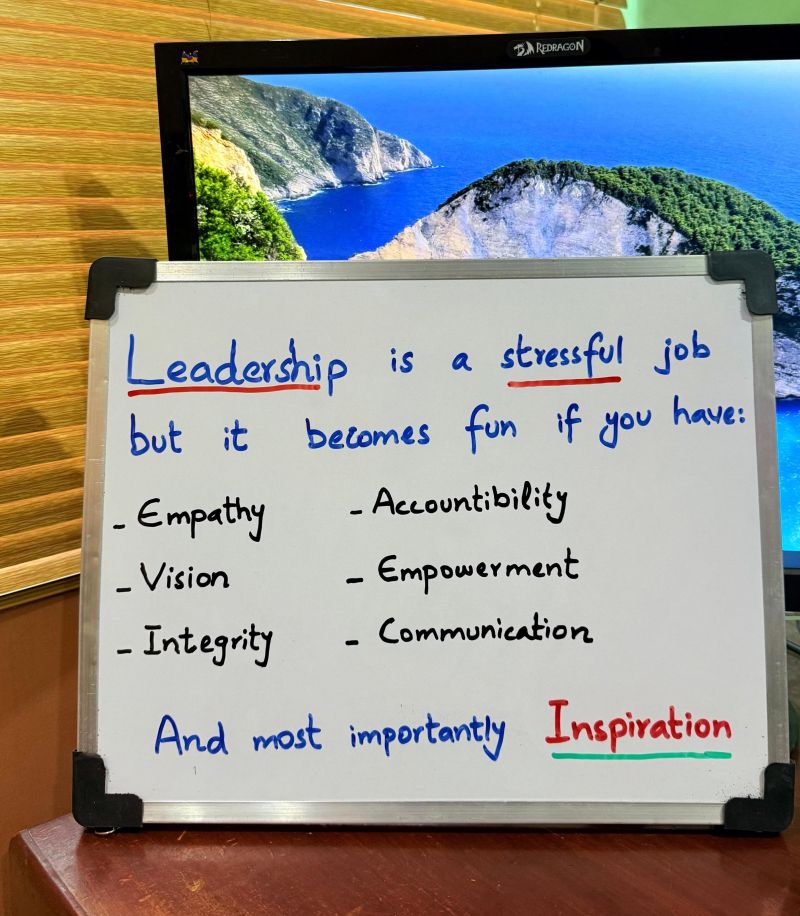 REDRAGON
Leadership is a stressful job
but it becomes fun if you have:
- Empathy - Accountibility
- Vision - Empowerment
- Integrity - Communication
And most importantly Inspiration